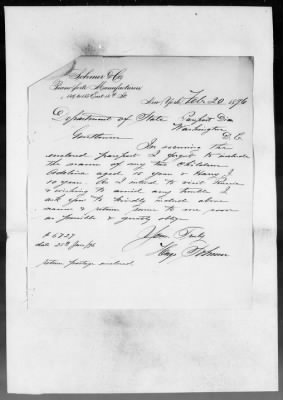 Sohmer & Co.
Pianoforte Manufacturers
149 to 155 East 14th St.
New York, Feb. 20 1896
Department of State Passport Div
Washington
D.C.
Gentlemen
In securing the
enclosed passport I forgot to include
the names of my two children
Adelina aged 12 year & Harry J
10 year. As I intend to visit
& wishing to avoid any trouble I
ask you to kindly include above
names & return same to me soon
as possible & greatly oblige
# 6727 Yours Truly
dat. 25th Jan/96 Hugo Sohmer
return postage enclosed.